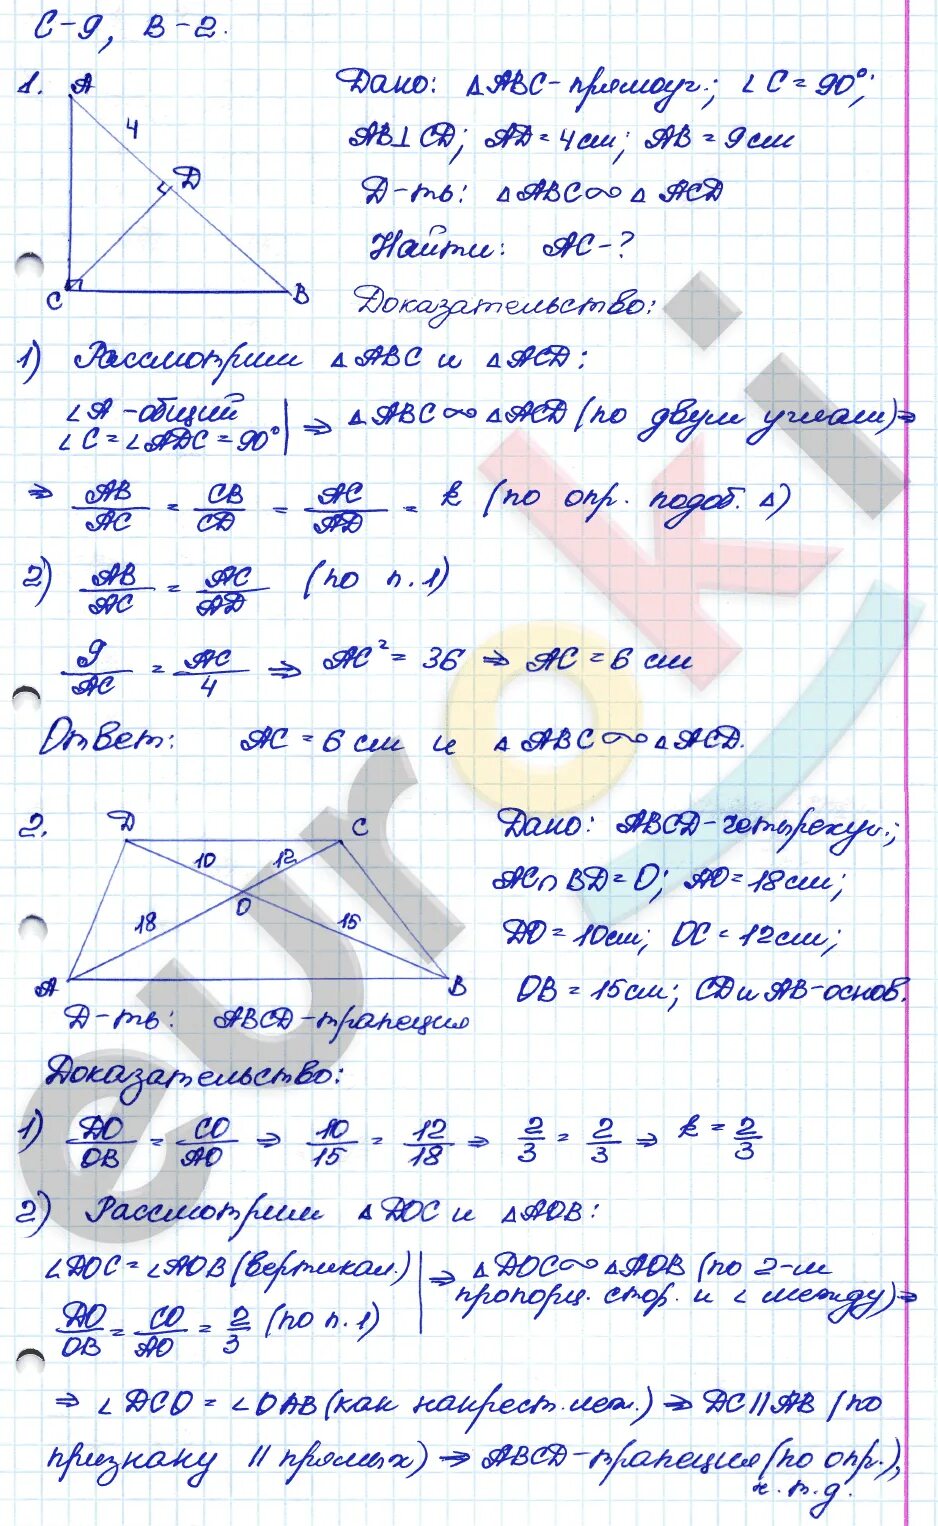 С-9, В-2.
1.
A
4
D
C
B
Дано: △ABC-прямоуг.; ∠C=90°;
AB⊥CD; AD=4см; AB=9см
Д-ть: △ABC∞△ACD
Найти: AC-?
Доказательство:
1) Рассмотрим △ABC и △ACD:
∠A-общий
∠C=∠ADC=90° | ⇒ △ABC∞△ACD (по двум углам)⇒
⇒ AB/AC = CB/CD = AC/AD = k (по опр. подоб. △)
2) AB/AC = AC/AD (по п.1)
9/AC = AC/4 ⇒ AC²=36 ⇒ AC=6 см
Ответ: AC=6 см и △ABC∞△ACD.
2.
D
C
10
12
O
18
15
A
B
Дано: ABCD-четырехуг.;
AC∩BD=O; AO=18см;
DO=10см; OC=12см;
OB=15см; CD и AB-основ.
Д-ть: ABCD-трапеция
Доказательство:
1) DO/OB = CO/AO ⇒ 10/15 = 12/18 ⇒ 2/3 = 2/3 ⇒ k=2/3
2) Рассмотрим △DOC и △AOB:
∠DOC=∠AOB (вертикал.) | ⇒ △DOC∞△AOB (по 2-м
DO/OB = CO/AO = 2/3 (по п.1) | пропорц. стор. и ∠ между)⇒
⇒ ∠DCO = ∠OAB (как накрест.леж.) ⇒ DC||AB (по
признаку || прямых) ⇒ ABCD-трапеция (по опр.),
ч.т.д.
euroki